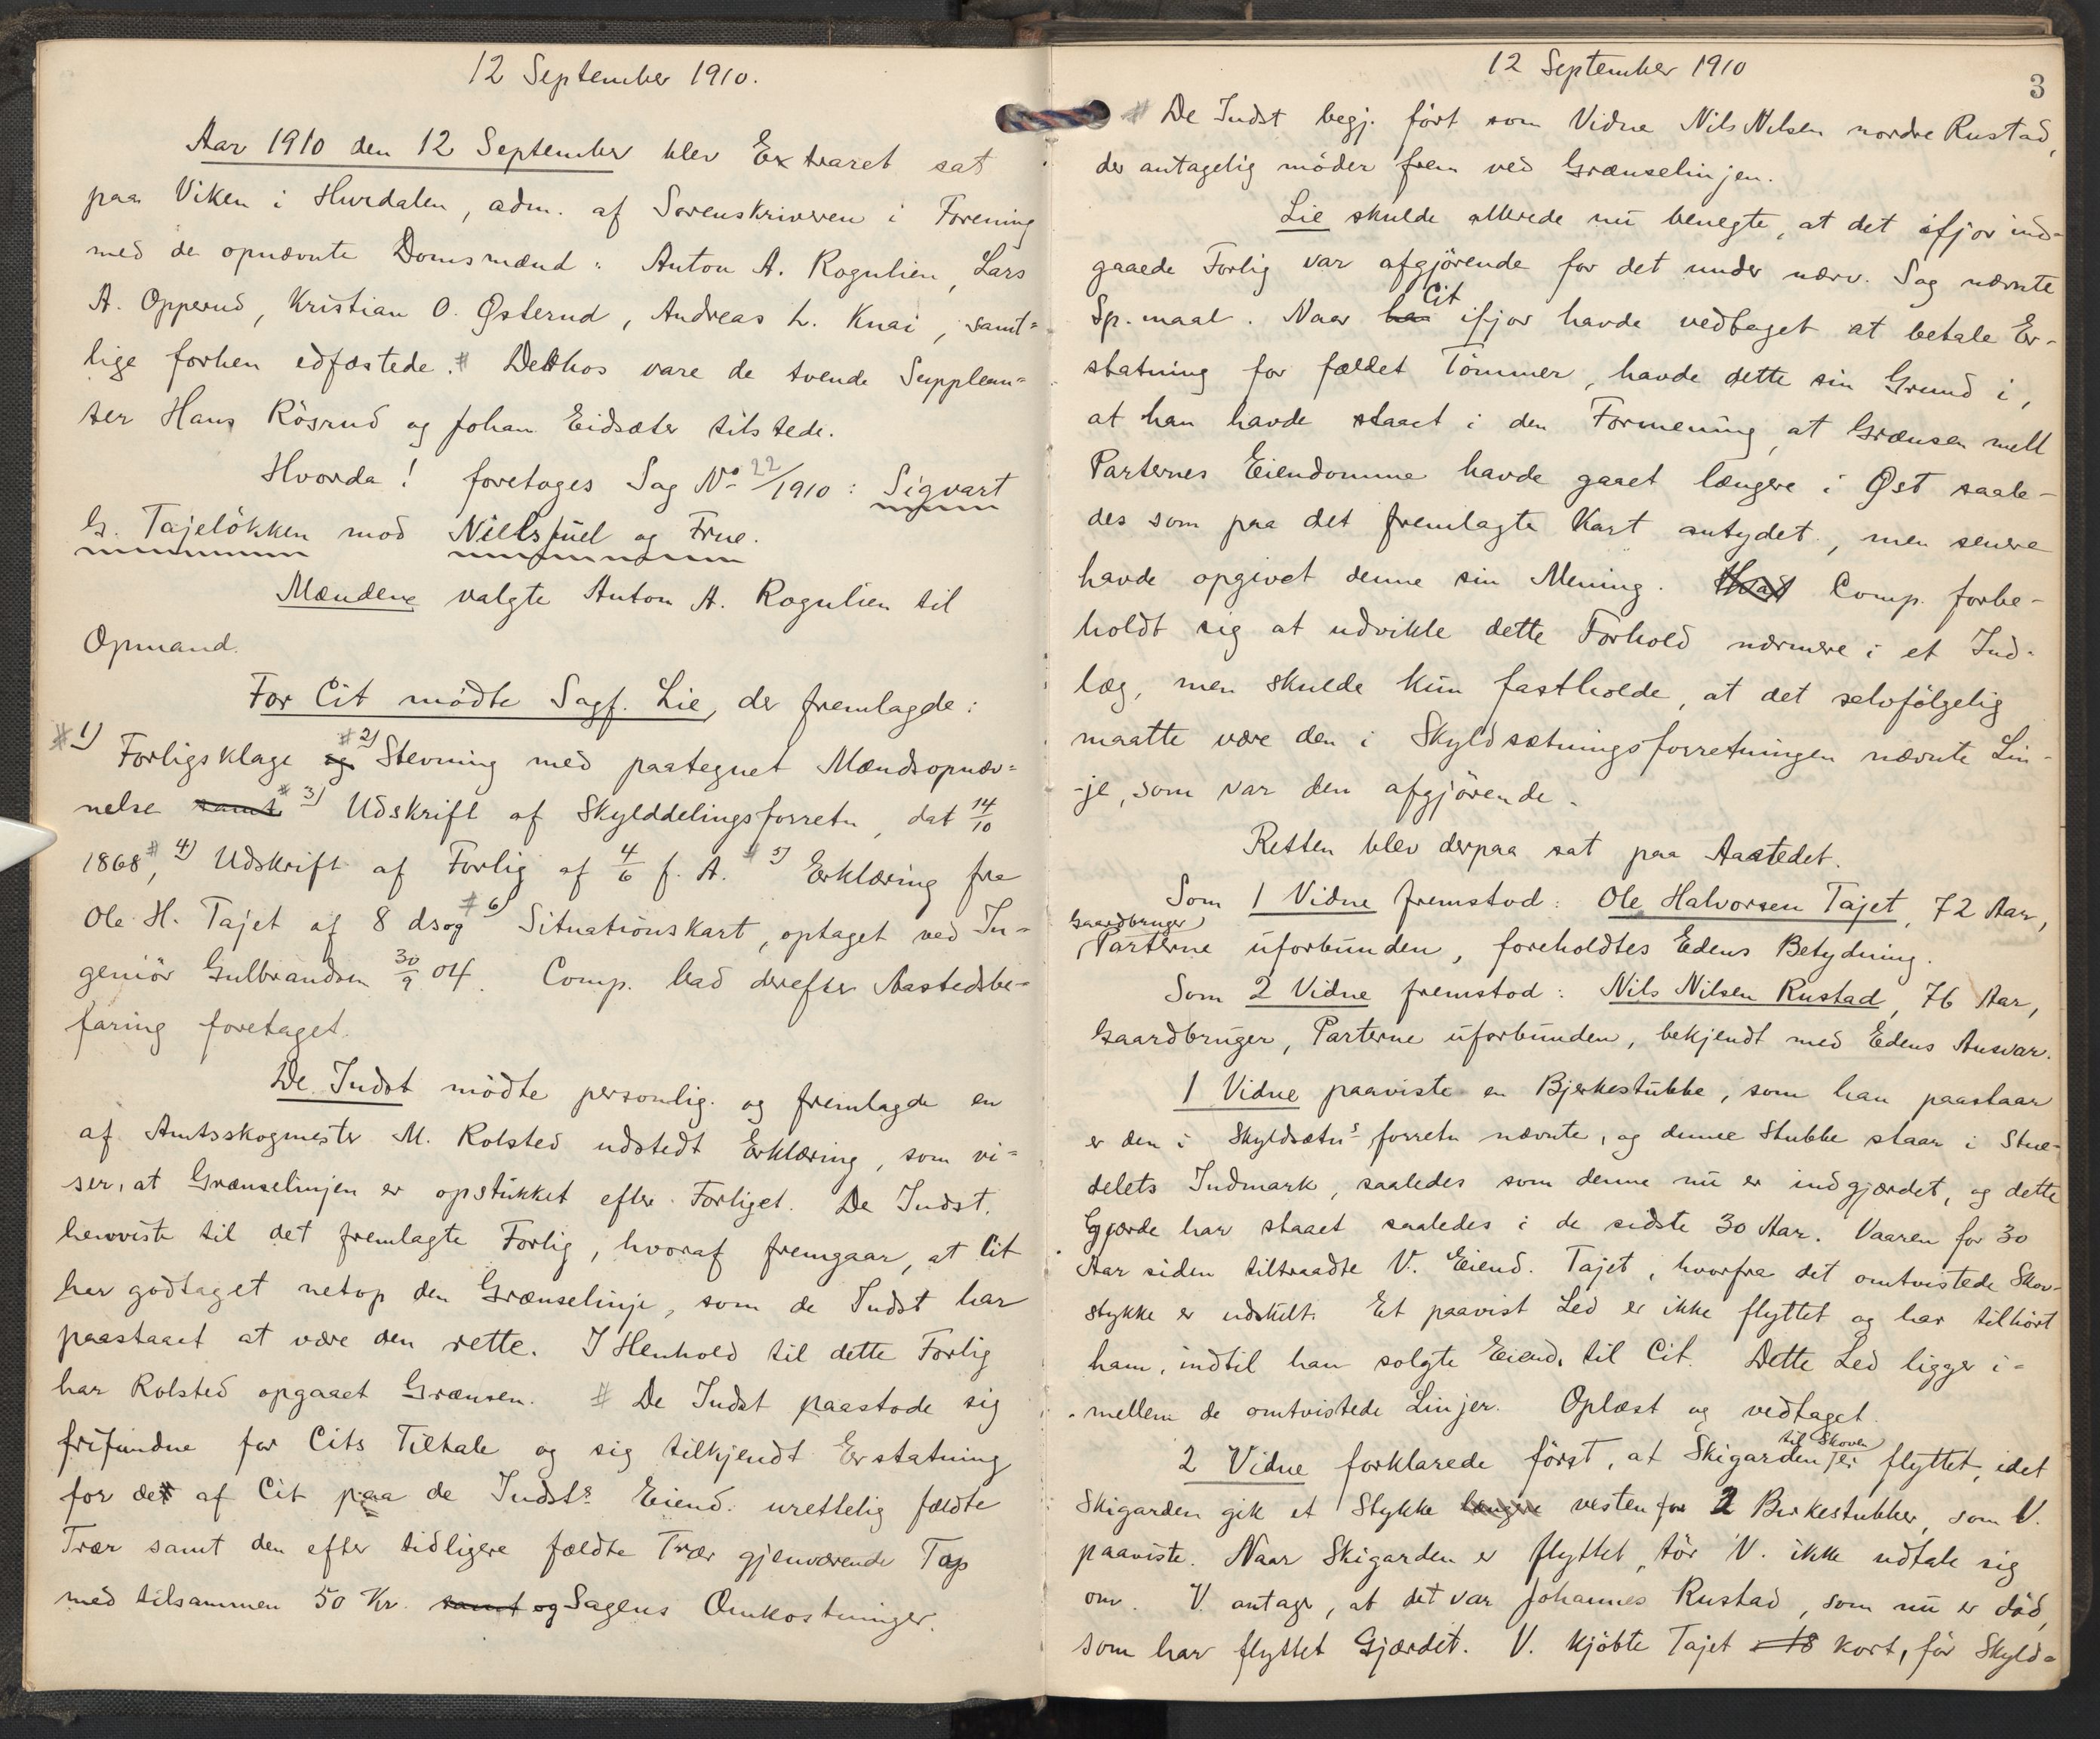 12 September 1910.
Aar 1910 den 12 September blev Extraret sat
paa Viken i Hurdalen, adm. af Sorenskriveren i Forening
med de opnævnte Domsmænd: Anton A. Rognlien, Lars
A. Opperud, Kristian O. Østerud, Andreas L. Knai, samt=
lige forhen edfæstede. # Derhos vare de tvende Supplean=
ter Hans Rösrud og Johan Eidsæter tilstede.
Hvorda! foretoges Sag No 22/1910: Sigvart
G. Tajelökken mod Niels Juel og Frue.
Mændene valgte Anton A. Rognlien til
Opmand.
For Cit mödte Sagf. Lie, der fremlagde:
# 1) Forligsklage og # 2) Stevning med paategnet Mændsopnæv=
nelse samt # 3) Udskrift af Skylddelingsforretn, dat 14/10
1868, # 4) Udskrift af Forlig af 4/6 f. A. # 5) Erklæring fra
Ole H. Tajet af 8 ds og # 6) Situationskart, optaget ved In=
geniör Gulbrandsen 30/9 04. Comp. bad derefter Aastedsbe=
faring foretaget.
De Indst mödte personlig og fremlagde en
af Amtsskogmester M. Rolsted udstedt Erklæring, som vi=
ser, at Grænselinjen er opstukket efter Forliget. De Indst.
henviste til det fremlagte Forlig, hvoraf fremgaar, at Cit
har godtaget netop den Grænselinje, som de Indst har
paastaaet at være den rette. I Henhold til dette Forlig
har Rolsted opgaaet Grænsen. # De Indst paastode sig
frifundne for Cits Tiltale og sig tilkjendt Erstatning
for det af Cit paa de Indsts Eiend. urettelig fældte
Trær samt den efter tidligere fældte Trær gjenværende Tap
med tilsammen 50 Kr. samt og Sagens Omkostninger.
12 September 1910
3
# De Indst begj. fört som Vidne Nils Nilsen nordre Rustad,
der antagelig möder frem ved Grænselinjen.
Lie skulde allerede nu benegte, at det ifjor ind-
gaaede Forlig var afgjörende for det under nærv. Sag nævnte
Sp.maal. Naar ha Cit ifjor havde vedtaget at betale Er-
statning for fældet Tömmer, havde dette sin Grund i,
at han havde staaet i den Formening, at Grænsen mell
Parternes Eiendomme havde gaaet længere i Øst saale-
des som paa det fremlagte Kart antydet, men senere
havde opgivet denne sin Mening. Hvad Comp. forbe-
holdt sig at udvikle dette Forhold nærmere i et Ind-
læg, men skulde kun fastholde, at det selvfölgelig
maatte være den i Skyldsætningsforretningen nævnte Lin-
-je, som var den afgjörende.
Retten blev derpaa sat paa Aastedet.
Som 1 Vidne fremstod: Ole Halvorsen Tajet, 72 Aar,
Gaardbruger
Parterne uforbunden, foreholdtes Edens Betydning.
Som 2 Vidne fremstod: Nils Nilsen Rustad, 76 Aar,
Gaardbruger, Parterne uforbunden, bekjendt med Edens Ansvar.
1 Vidne paaviste en Bjerkestubbe, som han paastaar
er den i Skyldsætns forretn nævnte, og denne Stubbe staar i Stue-
delets Indmark, saaledes som denne nu er indgjærdet, og dette
Gjærde har staaet saaledes i de sidste 30 Aar. Vaaren for 30
Aar siden tiltraadte V. Eiend. Tajet, hvorfra det omtvistede Skov-
stykke er udskilt. Et paavist Led er ikke flyttet og har tilhört
ham, indtil han solgte Eiend. til Cit. Dette Led ligger i=
mellem de omtvistede Linjer. Oplæst og vedtaget.
2 Vidne forklarede först, at Skigarden til Skoven er flyttet, idet
Skigarden gik et Stykke længere vesten for 2 Birkestubber, som V.
paaviste. Naar Skigarden er flyttet, tör V. ikke udtale sig
om. V. antager, at det var Johannes Rustad, som nu er död,
som har flyttet Gjærdet. V. kjöbte Tajet 18 kort, för Skyld=